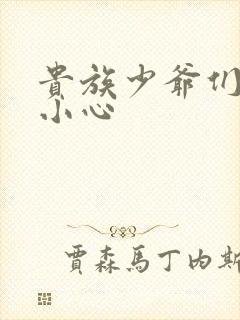 貴族少爺们
小心
賈森馬丁内斯